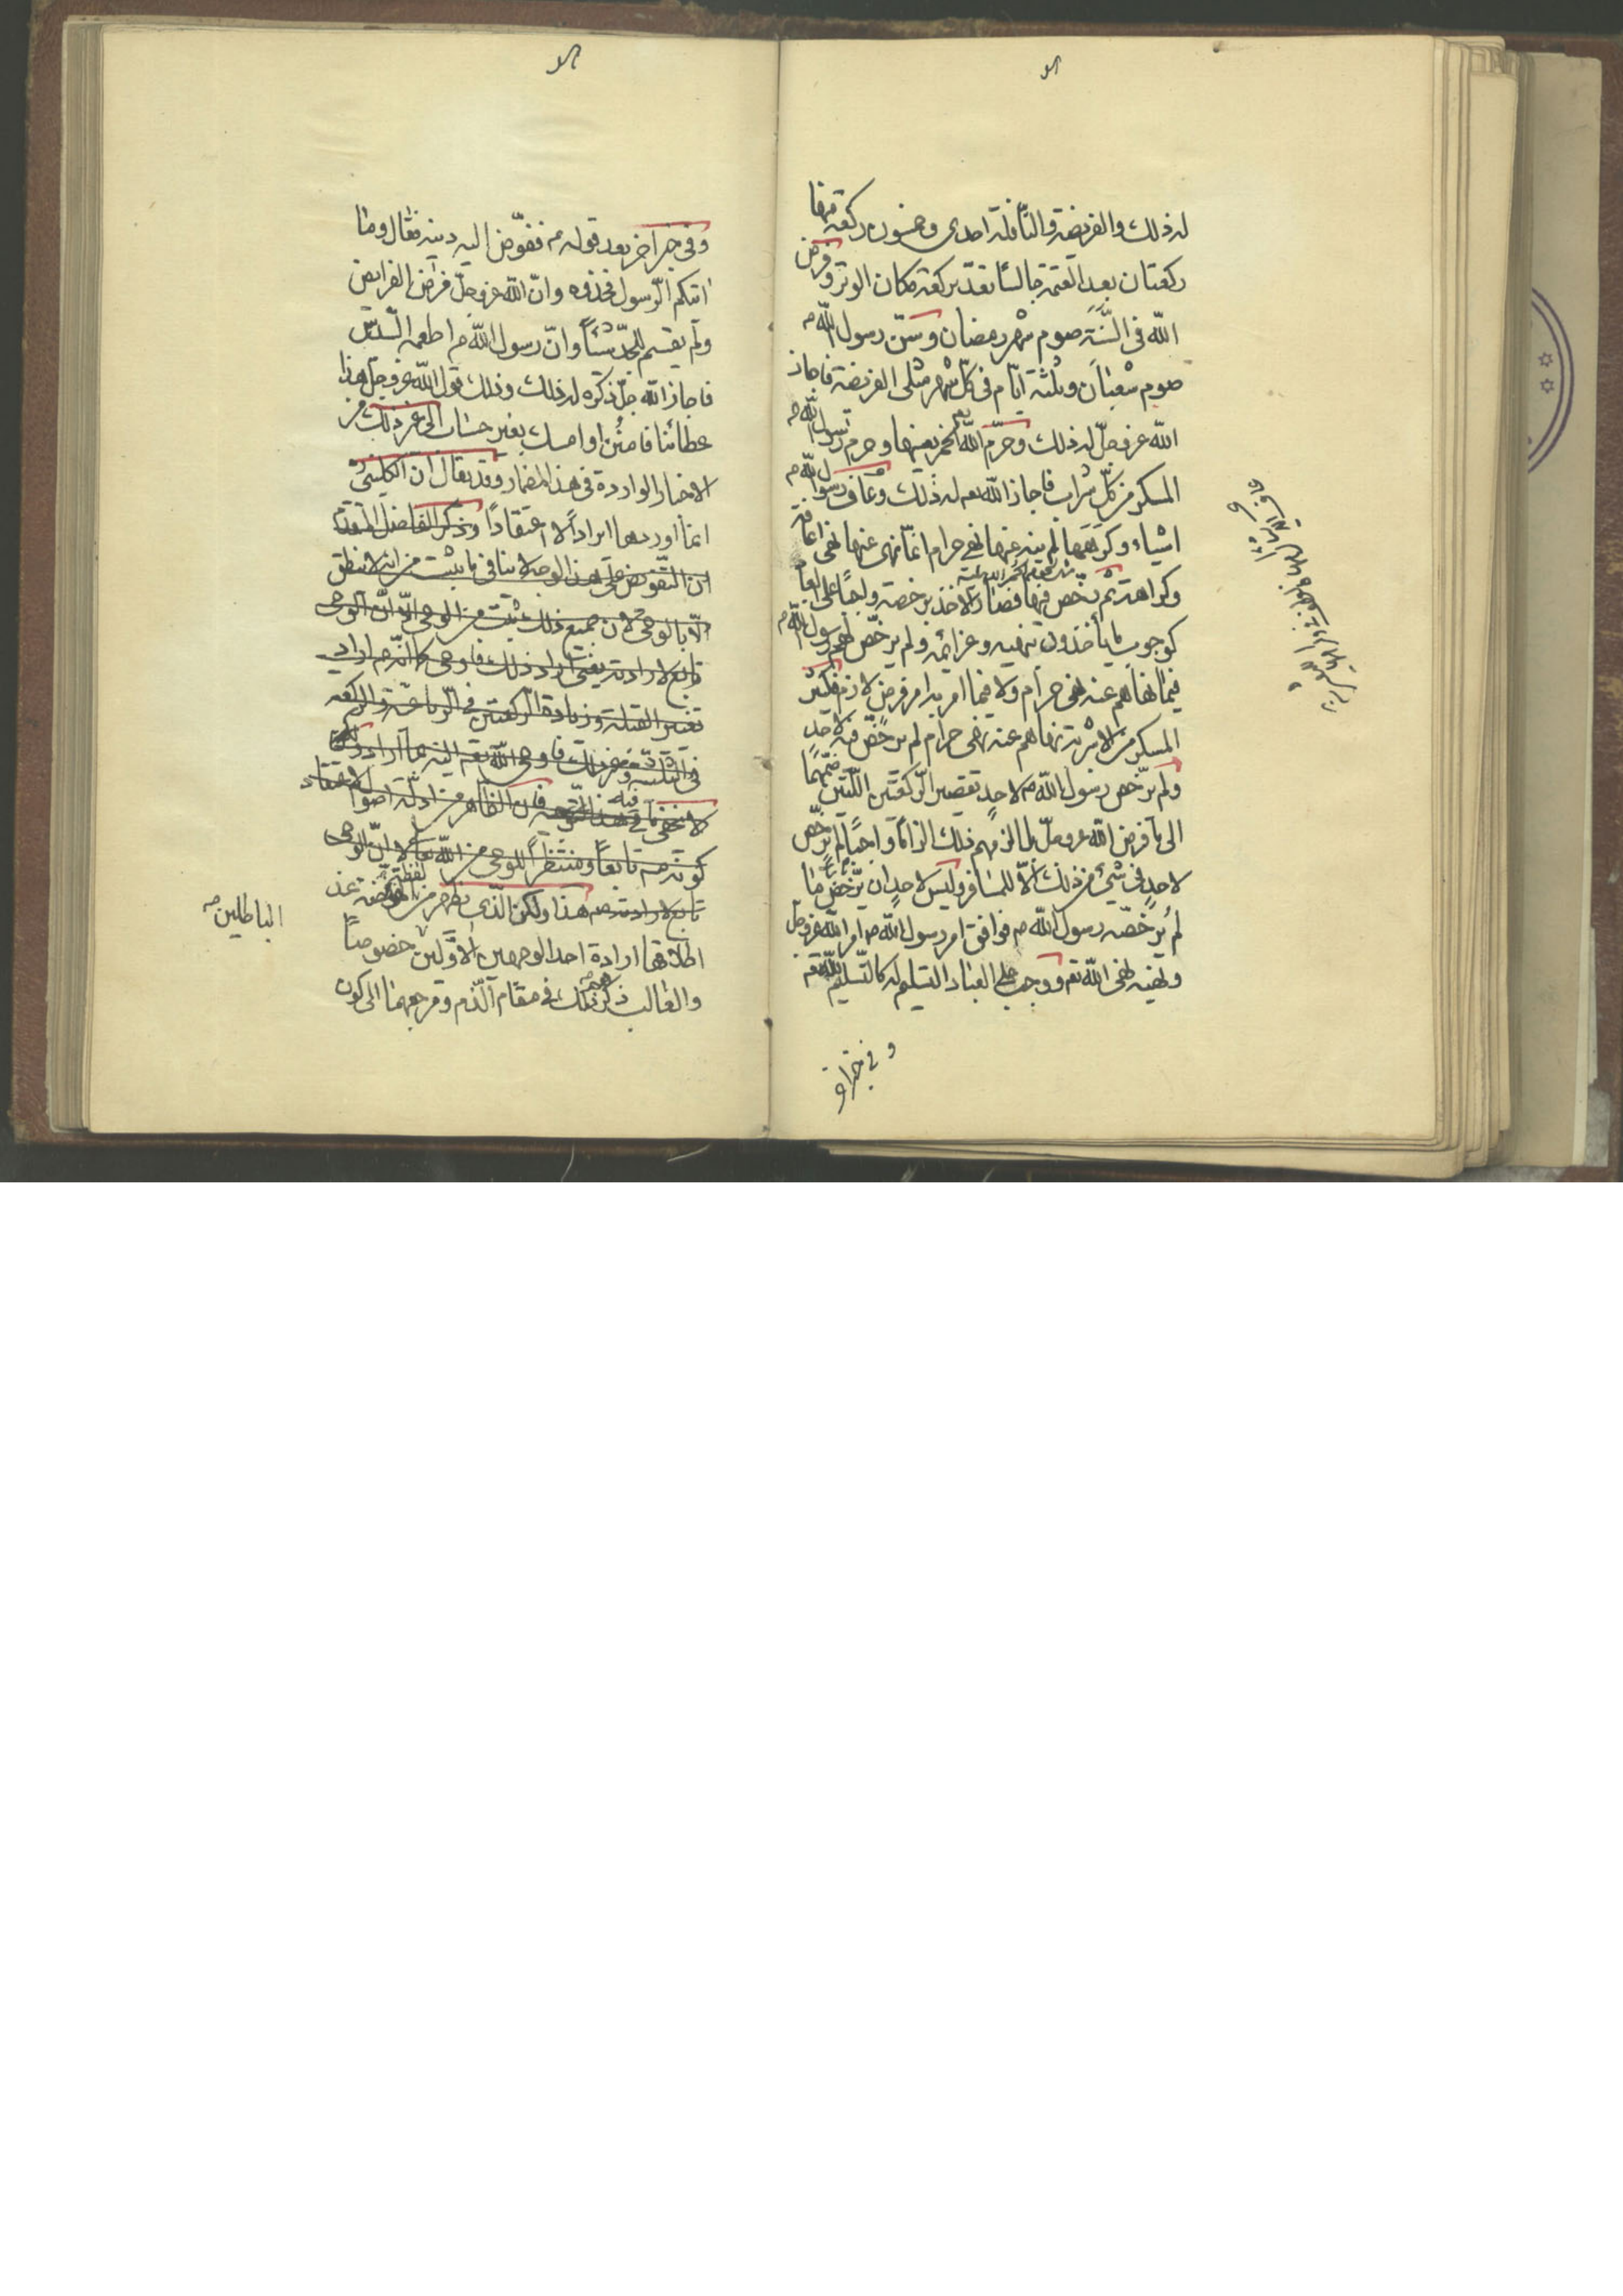 له ذلك والفريضة والنّافلة احدى وخمسون ركعة منها
ركعتان بعد العتمة جالسًا تعدّ بركعة مكان الوتر وفرض
الله فى السَّنَة صوم شهر رمضان وسنّ رسول الله ص
صوم شعبان وثلثة ايّام فى كلّ شهر مثلى الفريضة فاجاز
الله عز وجلّ له ذلك وحرّم الله تعم الخمر بعينها وحرم رسول الله ص
المسكر من كلّ شراب فاجاز الله تعم له ذلك وعاف رسول الله ص
اشياء وكرهها لم ينه عنها نهى حرام انّما نهى عنها نهى اعافة
وكراهة ثم رخص فيها فصار الاخذ برخصه واجبًا على العباد
كوجوب ما يأخذون بنهيه وعزائمه ولم يرخّص لهم رسول الله ص
فيما نهاهم عنه نهى حرام ولا فيما امر به امر فرض لازم فكثير
المسكر من الاشربة نهاهم عنه نهى حرام لم يرخّص فيه لاحد
ولم يرّخص رسول الله ص لاحدٍ تقصير الرّكعتين اللّتين ضمّهما
الى ما فرض الله عز وجلّ بل الزمهم ذلك الزامًا واجبًا لم يرخّص
لاحدٍ فى شيئ من ذلك الاّ للمسافر وليس لاحدٍ ان يرّخص ما
لم يرخّصه رسول الله ص فوافق امر رسول الله ص امر الله عز وجل
ونهيه نهى الله تعم ووجب على العباد التسليم له كالتّسليم لله تعم
وفى خبر اخر
وفى خبر اخر بعد قوله م ففوّض اليه دينه فقال وما
اتيكم الرّسول فخذوه وانّ الله عز وجلّ فرض الفرايض
ولم يقسم للجدّ شيئًا وانّ رسول الله ص اطعمه السّدس
فاجاز الله جلّ ذكره له ذلك وذلك قول الله عز وجلّ هذا
عطائنا فامنُن او امسك بغير حساب الى غير ذلك من
الاخبار الواردة فى هذا المضمار وقد يقال ان الكلينىّ
انما اوردها ايرادًا لا اعتقادًا وذكر الفاضل
ان التّفويض على هذا الوجه لا ينافى ما يثبت من انه لا ينطق
الاّ بالوحى لان جميع ذلك ثبت من الوحى الاّ انّ الوحى
تابع لارادته يعنى اراد ذلك فاوحى كما انّه م اراد
تغيير القبلة وزيادة الرّكعتين فى الرّباعيّة والركعة
فى الثلاثية وغير ذلك فاوحى الله تعم اليه بما اراد
لا يخفى ما فى هذا فان الظاهر من ادلّة
كونه ص تابعًا ومنتظرًا للوحى من الله تعالى لا انّ الوحى
تابع لارادته ص هذا ولكن الّذى يظهر من لفظة المفوّضة عند
اطلاقها ارادة احد الوجهين الاوّلين خصوصًا
الباطلين صح
والغالب ذكرهم فى مقام الّذم ومرجعهما الى كون